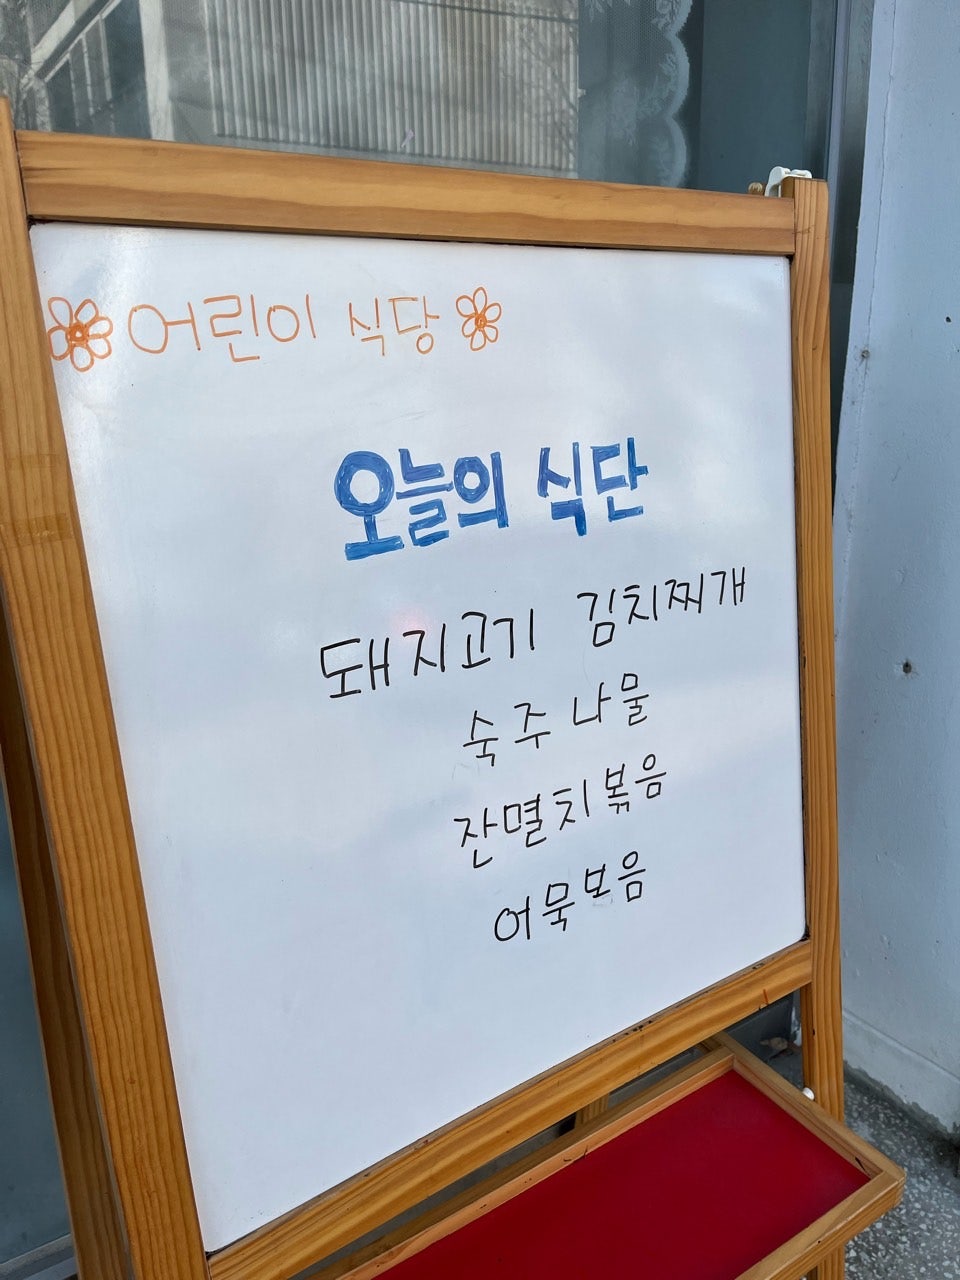 어린이 식당
오늘의 식단
돼지고기 김치찌개
숙주나물
잔멸치볶음
어묵보음